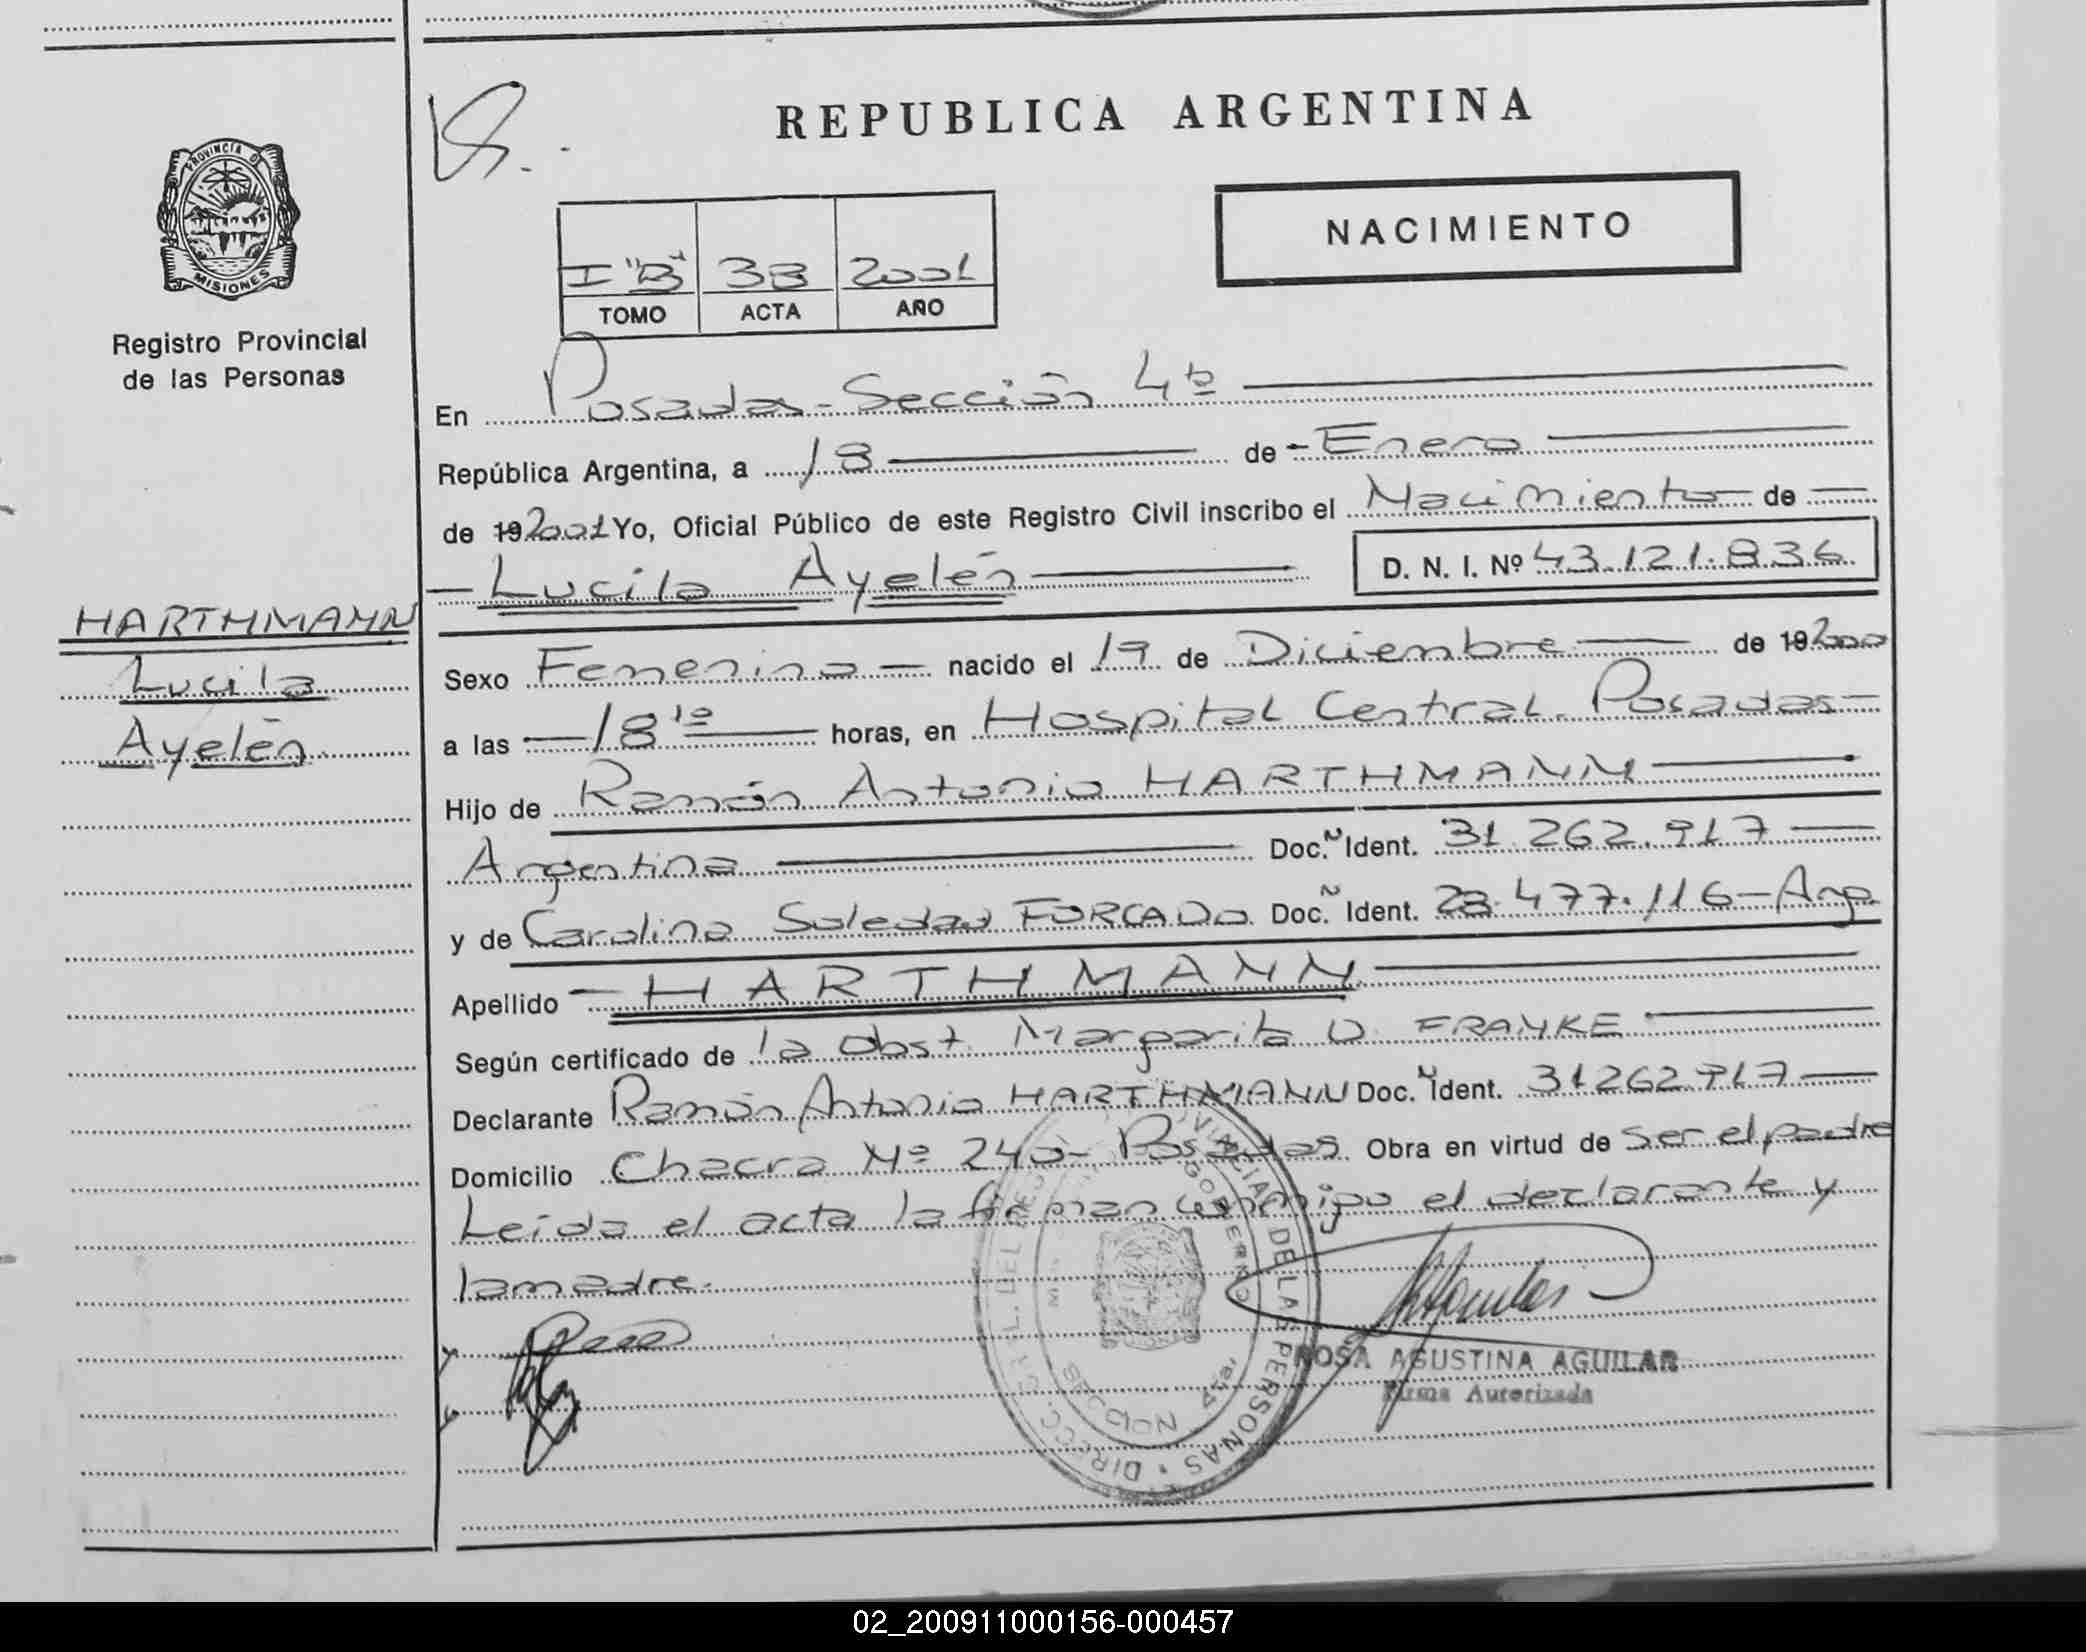 REPUBLICA ARGENTINA
NACIMIENTO
PROVINCIA DE
MISIONES
Registro Provincial
de las Personas
I "B" 38 2001
TOMO ACTA AÑO
En Posadas - Sección 4ta
República Argentina, a 18 de - Enero
de 19 2001 Yo, Oficial Público de este Registro Civil inscribo el Nacimiento de
Lucila Ayelén D. N. I. Nº 43.121.836
HARTHMANN
Lucila
Ayelén
Sexo Femenino nacido el 19 de Diciembre de 19 2000
a las 18 10 horas, en Hospital Central. Posadas
Hijo de Ramón Antonio HARTHMANN
Argentina Doc. Ident. 31.262.917
y de Carolina Soledad FORCADO Doc. Ident. 28.477.116 - Arg.
Apellido HARTHMANN
Según certificado de la Obst. Margarita D. FRANKE
Declarante Ramón Antonio HARTHMANN Doc. Ident. 31262917
Domicilio Chacra Nº 240 - Posadas. Obra en virtud de ser el padre
Leída el acta la firman conmigo el declarante y
la madre.
DE LAS PERSONAS
ROSA AGUSTINA AGUILAR
Firma Autorizada
02_200911000156-000457